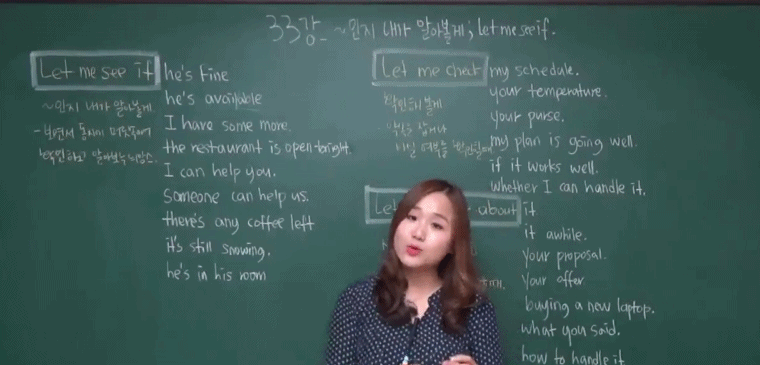 33강_ ~인지 내가 알아볼게 ; let me see if.
Let me see if
he's fine
he's available
I have some more.
the restaurant is open tonight.
I can help you.
someone can help us.
there's any coffee left
it's still snowing.
he's in his room
~인지 내가 알아볼게
Let me check
my schedule.
your temperature.
your purse.
my plan is going well.
if it works well.
whether I can handle it.
확인해볼게
Let about
it
it awhile.
your proposal.
your offer
buying a new laptop.
what you said.
how to handle it